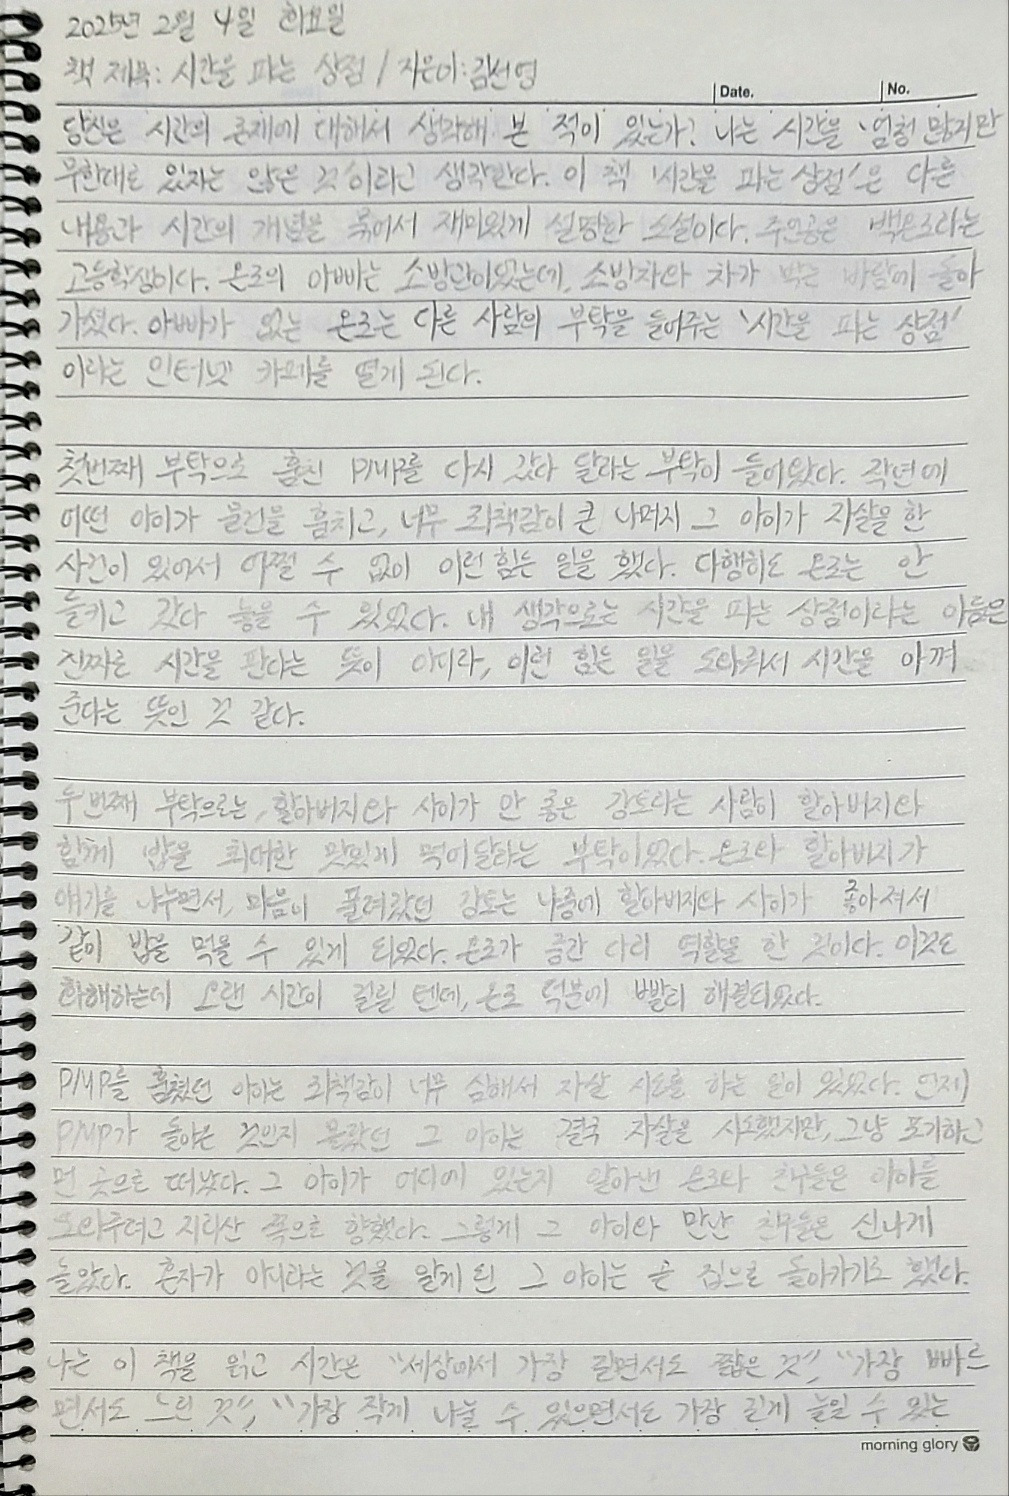 2025년 2월 4일 화요일
책 제목: 시간을 파는 상점 / 지은이: 김선영
Date. No.
당신은 시간의 존재에 대해서 생각해 본 적이 있는가? 나는 시간을 '엄청 많지만
무한대로 있지는 않은 것'이라고 생각한다. 이 책 '시간을 파는 상점'은 다른
내용과 시간의 개념을 묶어서 재미있게 설명한 소설이다. 주인공은 백온조라는
고등학생이다. 온조의 아빠는 소방관이었는데, 소방차와 차가 박는 바람에 돌아
가셨다. 아빠가 없는 온조는 다른 사람의 부탁을 들어주는 '시간을 파는 상점'
이라는 인터넷 카페를 열게 된다.
첫번째 부탁으로 훔친 PMP를 다시 갖다 달라는 부탁이 들어왔다. 작년에
어떤 아이가 물건을 훔치고, 너무 죄책감이 큰 나머지 그 아이가 자살을 한
사건이 있어서 어쩔 수 없이 이런 힘든 일을 했다. 다행히도 온조는 안
들키고 갖다 놓을 수 있었다. 내 생각으로는 시간을 파는 상점이라는 이름은
진짜로 시간을 판다는 뜻이 아니라, 이런 힘든 일을 도와줘서 시간을 아껴
준다는 뜻인 것 같다.
두번째 부탁으로는, 할아버지와 사이가 안 좋은 강토라는 사람이 할아버지와
함께 밥을 최대한 맛있게 먹어달라는 부탁이었다. 온조와 할아버지가
얘기를 나누면서, 마음이 풀려갔던 강토는 나중에 할아버지와 사이가 좋아져서
같이 밥을 먹을 수 있게 되었다. 온조가 중간 다리 역할을 한 것이다. 이것도
화해하는데 오랜 시간이 걸릴 텐데, 온조 덕분에 빨리 해결되었다.
PMP를 훔쳤던 아이는 죄책감이 너무 심해서 자살 시도를 하는 일이 있었다. 언제
PMP가 돌아온 것인지 몰랐던 그 아이는 결국 자살을 시도했지만, 그냥 포기하고
먼 곳으로 떠났다. 그 아이가 어디에 있는지 알아낸 온조와 친구들은 이아를
도와주려고 지리산 쪽으로 향했다. 그렇게 그 아이와 만난 친구들은 신나게
놀았다. 혼자가 아니라는 것을 알게 된 그 아이는 곧 집으로 돌아가기로 했다.
나는 이 책을 읽고 시간은 "세상에서 가장 길면서도 짧은 것", "가장 빠르
면서도 느린 것", "가장 작게 나눌 수 있으면서도 가장 길게 늘일 수 있는
morning glory